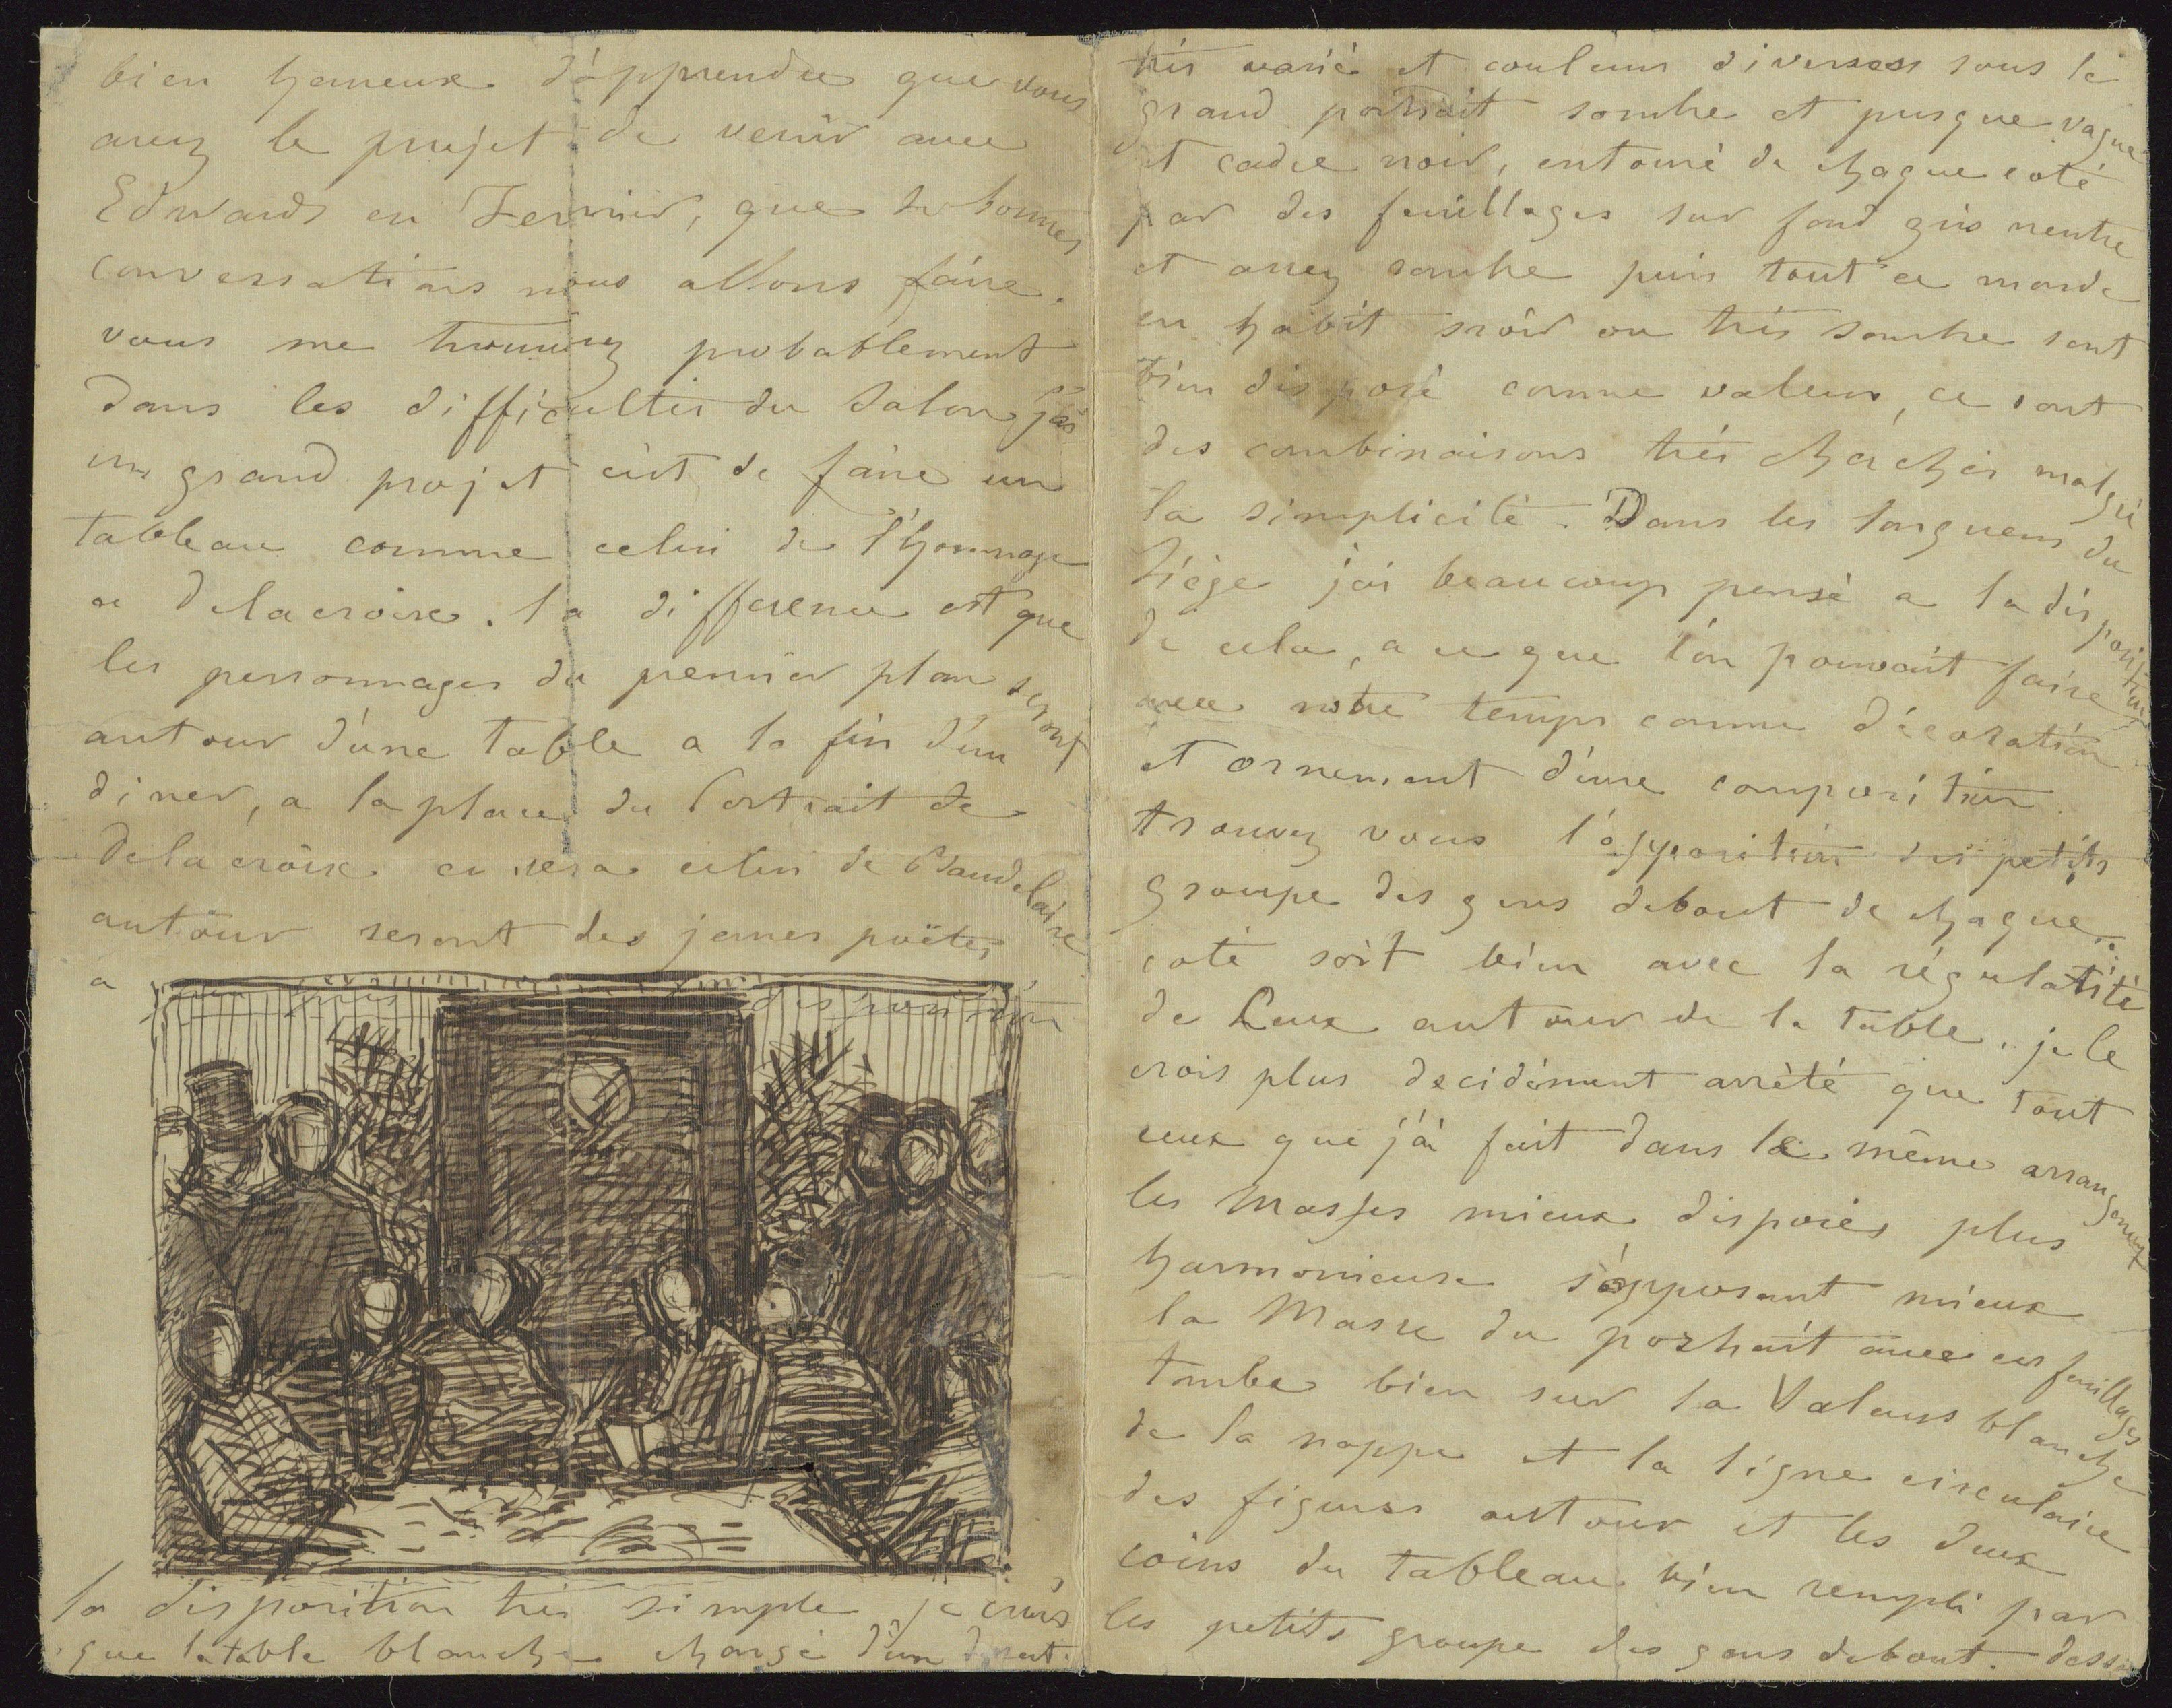 bien heureux d'apprendre que vous
avez le projet de venir avec
Edwards en Fevrier, que de bonnes
conversations nous allons faire.
vous me trouverez probablement
dans les difficultés du Salon j'ai
un grand projet c'est de faire un
tableau comme celui de l'hommage
a Delacroix. la difference est que
les personnages du premier plan seront
autour d'une table a la fin d'un
diner, a la place du Portrait de
Delacroix ce sera celui de Baudelaire
autour seront des jeunes poëtes
a disposition
la disposition très simple je crois
que la table blanche chargé d'un dessert
très varié et couleurs diverses sous le
grand portrait sombre et presque vague
et cadre noir, entouré de chaque coté
par des feuillages sur fond gris neutre
et assez sombre puis tout ce monde
en habit noir ou très sombre sont
bien disposé comme valeurs, ce sont
des combinaisons très cherchés malgré
la simplicité. Dans les longueurs du
Siège j'ai beaucoup pensé a la disposition
de cela, a ce que l'on pouvait faire
avec notre temps comme décoration
et ornement d'une composition
trouvez vous l'opposition des petits
groupe des gens debout de chaque
coté soit bien avec la régularité
de Ceux autour de la table. je le
crois plus decidément arrêté que tout
ceux que j'ai fait dans le même arrangement
les Masses mieux disposés plus
harmonieuse s'opposant mieux
la Masse du portrait avec ces feuillages
tombe bien sur la Valeurs blanche
de la nappe et la ligne circulaire
des figures autour et les deux
coins du tableau bien rempli par
les petits groupe des gens debout.